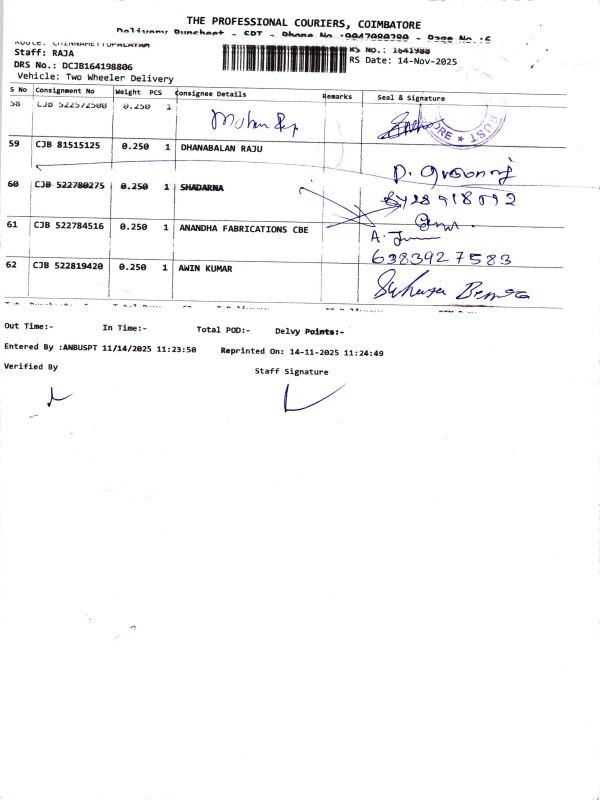 THE PROFESSIONAL COURIERS, COIMBATORE
Delivery Runsheet - CDT - Phone No.:9047080280 - Page No.:6
Route: CHINNAMETTUPALAYAM
Staff: RAJA
RS No.: 1641988
DRS No.: DCJB164198806
RS Date: 14-Nov-2025
Vehicle: Two Wheeler Delivery
S No Consignment No Weight PCS Consignee Details Remarks Seal & Signature
58 CJB 522572500 0.250 1
59 CJB 81515125 0.250 1 DHANABALAN RAJU
60 CJB 522780275 0.250 1 SHADARNA
61 CJB 522784516 0.250 1 ANANDHA FABRICATIONS CBE
6383927583
62 CJB 522819420 0.250 1 AWIN KUMAR
Out Time:- In Time:- Total POD:- Delvy Points:-
Entered By :ANBUSPT 11/14/2025 11:23:50 Reprinted On: 14-11-2025 11:24:49
Verified By
Staff Signature